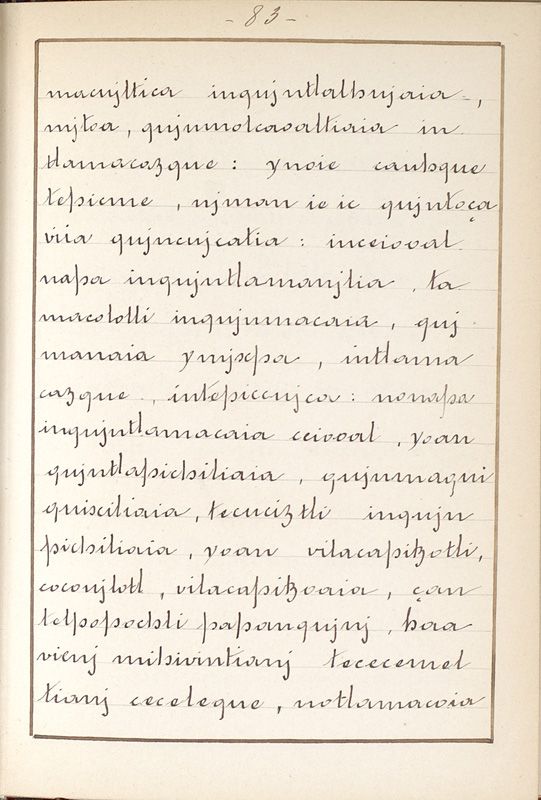 - 83 -
macujltica inqujntlalhujaia -,
mjtoa, qujnnotcaoaltiaia in
tlamacazque: ynoie cauhque
tepicme, njman ie ic qujntoça
viia qujncujcatia: inceiooal.
napa inqujntlamanjlia, ta
macolotli inqujnmacaia, quj
manaia ymjxpa, intlama
cazque., intepiccujca: nonapa
inqujntlamacaia ceiooal, yoan
qujntlapichiliaia, qujnmaqui
quixiliaia, tecuciztli inqujn
pichiliaia, yoan vilacapitzotli,
coconjlotl, vilacapitzoaia, çan
telpopochti papanqujnj, haa
vienj mihivintianj tececemel
tianj ceceleque, notlamacoia